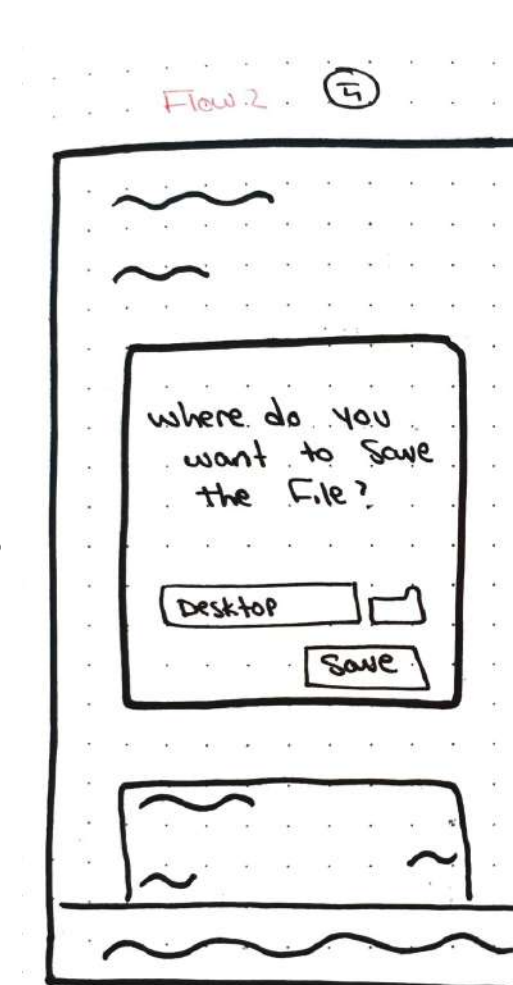 Flow.2
where do you
want to Save
the File?
Desktop
Save